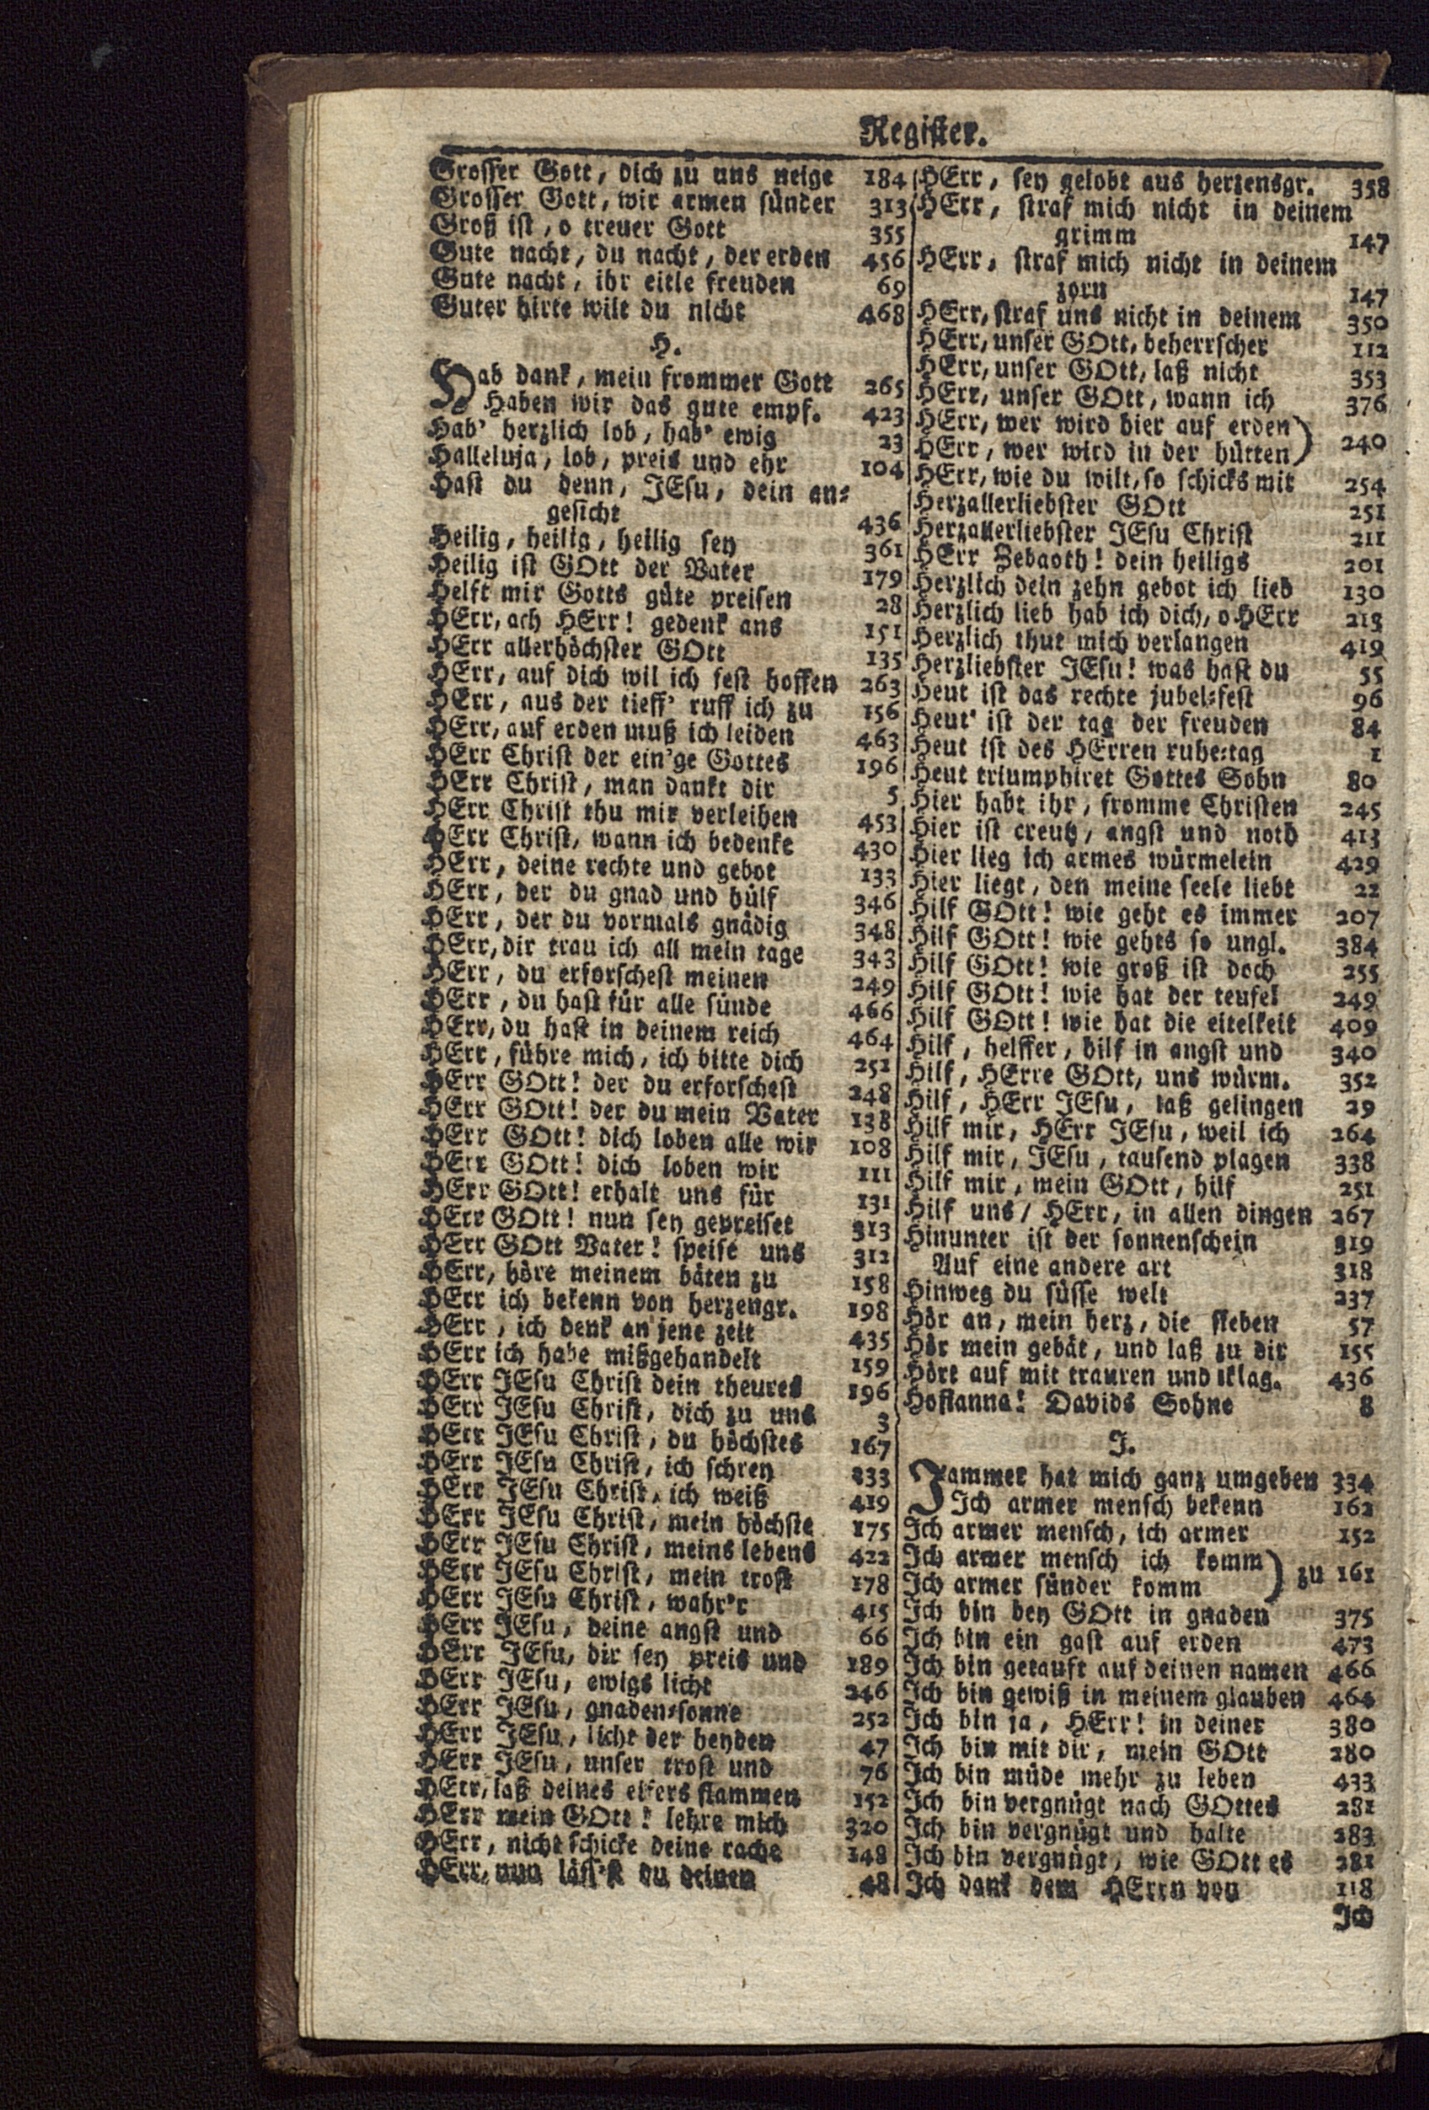 Register.
Grosser Gott, dich zu uns neige 184
Grosser Gott, wir armen sünder 313
Groß ist, o treuer Gott 355
Gute nacht, du nacht, der erden 456
Gute nacht, ihr eitle freuden 69
Guter hirte wilt du nicht 468
H.
Hab dank, mein frommer Gott 265
Haben wir das gute empf. 423
Hab' herzlich lob, hab' ewig 23
Halleluja, lob, preis und ehr 104
Hast du denn, JEsu, dein an-
gesicht 436
Heilig, heilig, heilig sey 361
Heilig ist GOtt der Vater 179
Helft mir Gotts güte preisen 28
HErr, ach HErr! gedenk ans 151
HErr allerhöchster GOtt 135
HErr, auf dich wil ich fest hoffen 263
HErr, aus der tieff' ruff ich zu 156
HErr, auf erden muß ich leiden 463
HErr Christ der ein'ge Gottes 196
HErr Christ, man dankt dir 5
HErr Christ thu mir verleihen 453
HErr Christ, wann ich bedenke 430
HErr, deine rechte und gebot 133
HErr, der du gnad und hülf 346
HErr, der du vormals gnädig 348
HErr, dir trau ich all mein tage 343
HErr, du erforschest meinen 249
HErr, du hast für alle sünde 466
HErr, du hast in deinem reich 464
HErr, führe mich, ich bitte dich 251
HErr GOtt! der du erforschest 248
HErr GOtt! der du mein Vater 138
HErr GOtt! dich loben alle wir 108
HErr GOtt! dich loben wir 111
HErr GOtt! erhalt uns für 131
HErr GOtt! nun sey gepreiset 313
HErr GOtt Vater! speise uns 312
HErr, höre meinem bäten zu 158
HErr ich bekenn von herzengr. 198
HErr, ich denk an jene zeit 435
HErr ich habe mißgehandelt 159
HErr JEsu Christ dein theures 196
HErr JEsu Christ, dich zu uns 3
HErr JEsu Christ, du höchstes 167
HErr JEsu Christ, ich schrey 333
HErr JEsu Christ, ich weiß 419
HErr JEsu Christ, mein höchste 175
HErr JEsu Christ, meins lebens 422
HErr JEsu Christ, mein trost 178
HErr JEsu Christ, wahr'r 415
HErr JEsu, deine angst und 66
HErr JEsu, dir sey preis und 189
HErr JEsu, ewigs licht 246
HErr JEsu, gnaden-sonne 252
HErr JEsu, licht der heyden 47
HErr JEsu, unser trost und 76
HErr, laß deines eifers flammen 152
HErr mein GOtt! lehre mich 320
HErr, nicht schicke deine rache 148
HErr, nun läss'st du deinen 48
HErr, sey gelobt aus herzensgr. 358
HErr, straf mich nicht in deinem
grimm 147
HErr, straf mich nicht in deinem
zorn 147
HErr, straf uns nicht in deinem 350
HErr, unser GOtt, beherrscher 112
HErr, unser GOtt, laß nicht 353
HErr, unser GOtt, wann ich 376
HErr, wer wird hier auf erden)
HErr, wer wird in der hütten) 240
HErr, wie du wilt, so schicks mit 254
Herzallerliebster GOtt 251
Herzallerliebster JEsu Christ 211
HErr Zebaoth! dein heiligs 201
Herzlich dein zehn gebot ich lieb 130
Herzlich lieb hab ich dich, o HErr 213
Herzlich thut mich verlangen 419
Herzliebster JEsu! was hast du 55
Heut ist das rechte jubel-fest 96
Heut' ist der tag der freuden 84
Heut ist des HErren ruhe-tag 1
Heut triumphiret Gottes Sohn 80
Hier habt ihr, fromme Christen 245
Hier ist creutz, angst und noth 413
Hier lieg ich armes würmelein 429
Hier liegt, den meine seele liebt 22
Hilf GOtt! wie geht es immer 207
Hilf GOtt! wie gehts so ungl. 384
Hilf GOtt! wie groß ist doch 255
Hilf GOtt! wie hat der teufel 249
Hilf GOtt! wie hat die eitelkeit 409
Hilf, helffer, hilf in angst und 340
Hilf, HErre GOtt, uns würm. 352
Hilf, HErr JEsu, laß gelingen 29
Hilf mir, HErr JEsu, weil ich 264
Hilf mir, JEsu, tausend plagen 338
Hilf mir, mein GOtt, hilf 251
Hilf uns, HErr, in allen dingen 267
Hinunter ist der sonnenschein 319
Auf eine andere art 318
Hinweg du süsse welt 237
Hör an, mein herz, die sieben 57
Hör mein gebät, und laß zu dir 155
Hört auf mit trauren und iklag. 436
Hosianna! Davids Sohne 8
J.
Jammer hat mich ganz umgeben 334
Ich armer mensch bekenn 162
Ich armer mensch, ich armer 152
Ich armer mensch ich komm)
Ich armer sünder komm ) zu 161
Ich bin bey GOtt in gnaden 375
Ich bin ein gast auf erden 473
Ich bin getauft auf deinen namen 466
Ich bin gewiß in meinem glauben 464
Ich bin ja, HErr! in deiner 380
Ich bin mit dir, mein GOtt 280
Ich bin müde mehr zu leben 433
Ich bin vergnügt nach GOttes 281
Ich bin vergnügt und halte 283
Ich bin vergnügt, wie GOtt es 281
Ich dank dem HErrn von 118
Ich